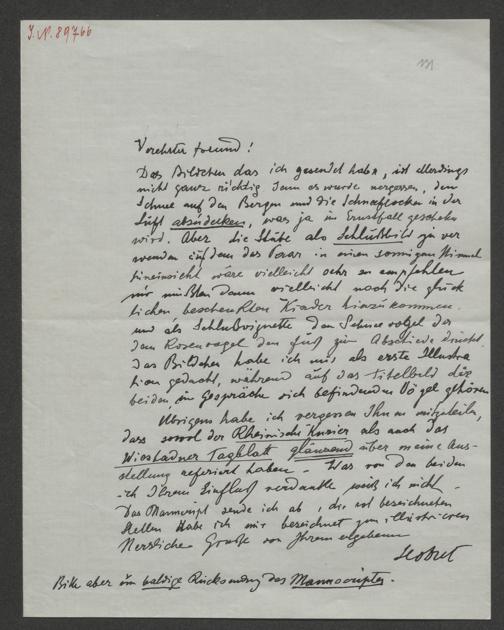 J.N. 89766
Verehrter Freund!
Das Bildchen das ich gesendet habe, ist allerdings
nicht ganz richtig denn es wurde vergessen, den
Schnee auf den Bergen und die Schneeflocken in der
Luft abzudecken, was ja im Ernstfall geschehn
wird. Aber die Skizze als Schlußbild zu ver
wenden auf dem der in einen sonnigen Himmel
hineinsieht wäre vielleicht sehr zu empfehlen
nur müßten dann vielleicht noch die glück
lichen beschenkten Kinder hinzukommen.
und als Schlußvignette den Schneevogel der
dem Rosenvogel den zum Abschiede drückt.
Das Bildchen habe ich mir als erste Illustra
tion gedacht, während auf das Titelbild die
beiden, im Gespräche sich befindenden Vögel gehören
Übrigens habe ich vergessen Ihnen mitzuteilen,
dass sowol der Rheinische Kurier als auch das
Wiesbadner Tagblatt glänzend über meine Aus-
stellung referiert haben. Was von den beiden
ich Ihrem Einfluß verdanke weiß ich nicht.
Das Manuscript sende ich ab, die bezeichneten
Stellen habe ich mir bezeichnet zum illustrieren
Herzliche Grüße von Ihrem ergebenen
Bitte aber um baldige Rücksendung des Manuscriptes.